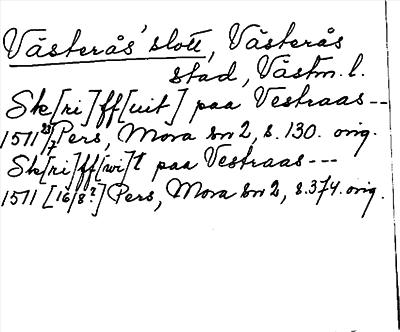 Västerås slott, Västerås
stad, Västm. l.
Sk[ri]ff[uit] paa Vestraas --
1511 23/7 Pers, Mora sn 2, s. 130. orig.
Sk[ri]ff[wi]t paa Vestraas ---
1511 [16/8?] Pers, Mora sn 2, s. 374. orig.